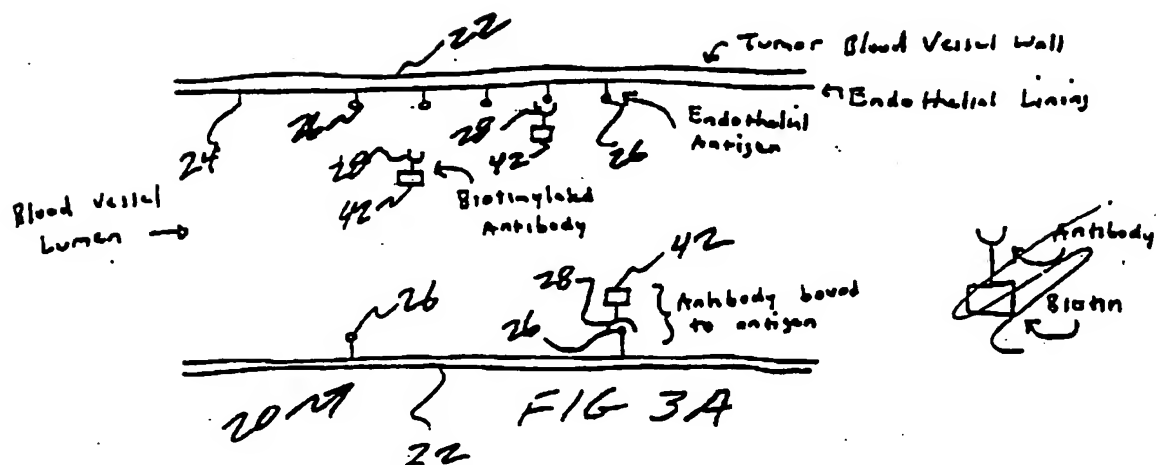 22
Tumor Blood Vessel Wall
Endothelial Lining
24
26
28
42
Endothelial
Antigen
26
28
42
Biotinylated
Antibody
Blood Vessel
Lumen
42
28
26
Antibody bound
to antigen
26
Antibody
Biotin
20
22
FIG 3A